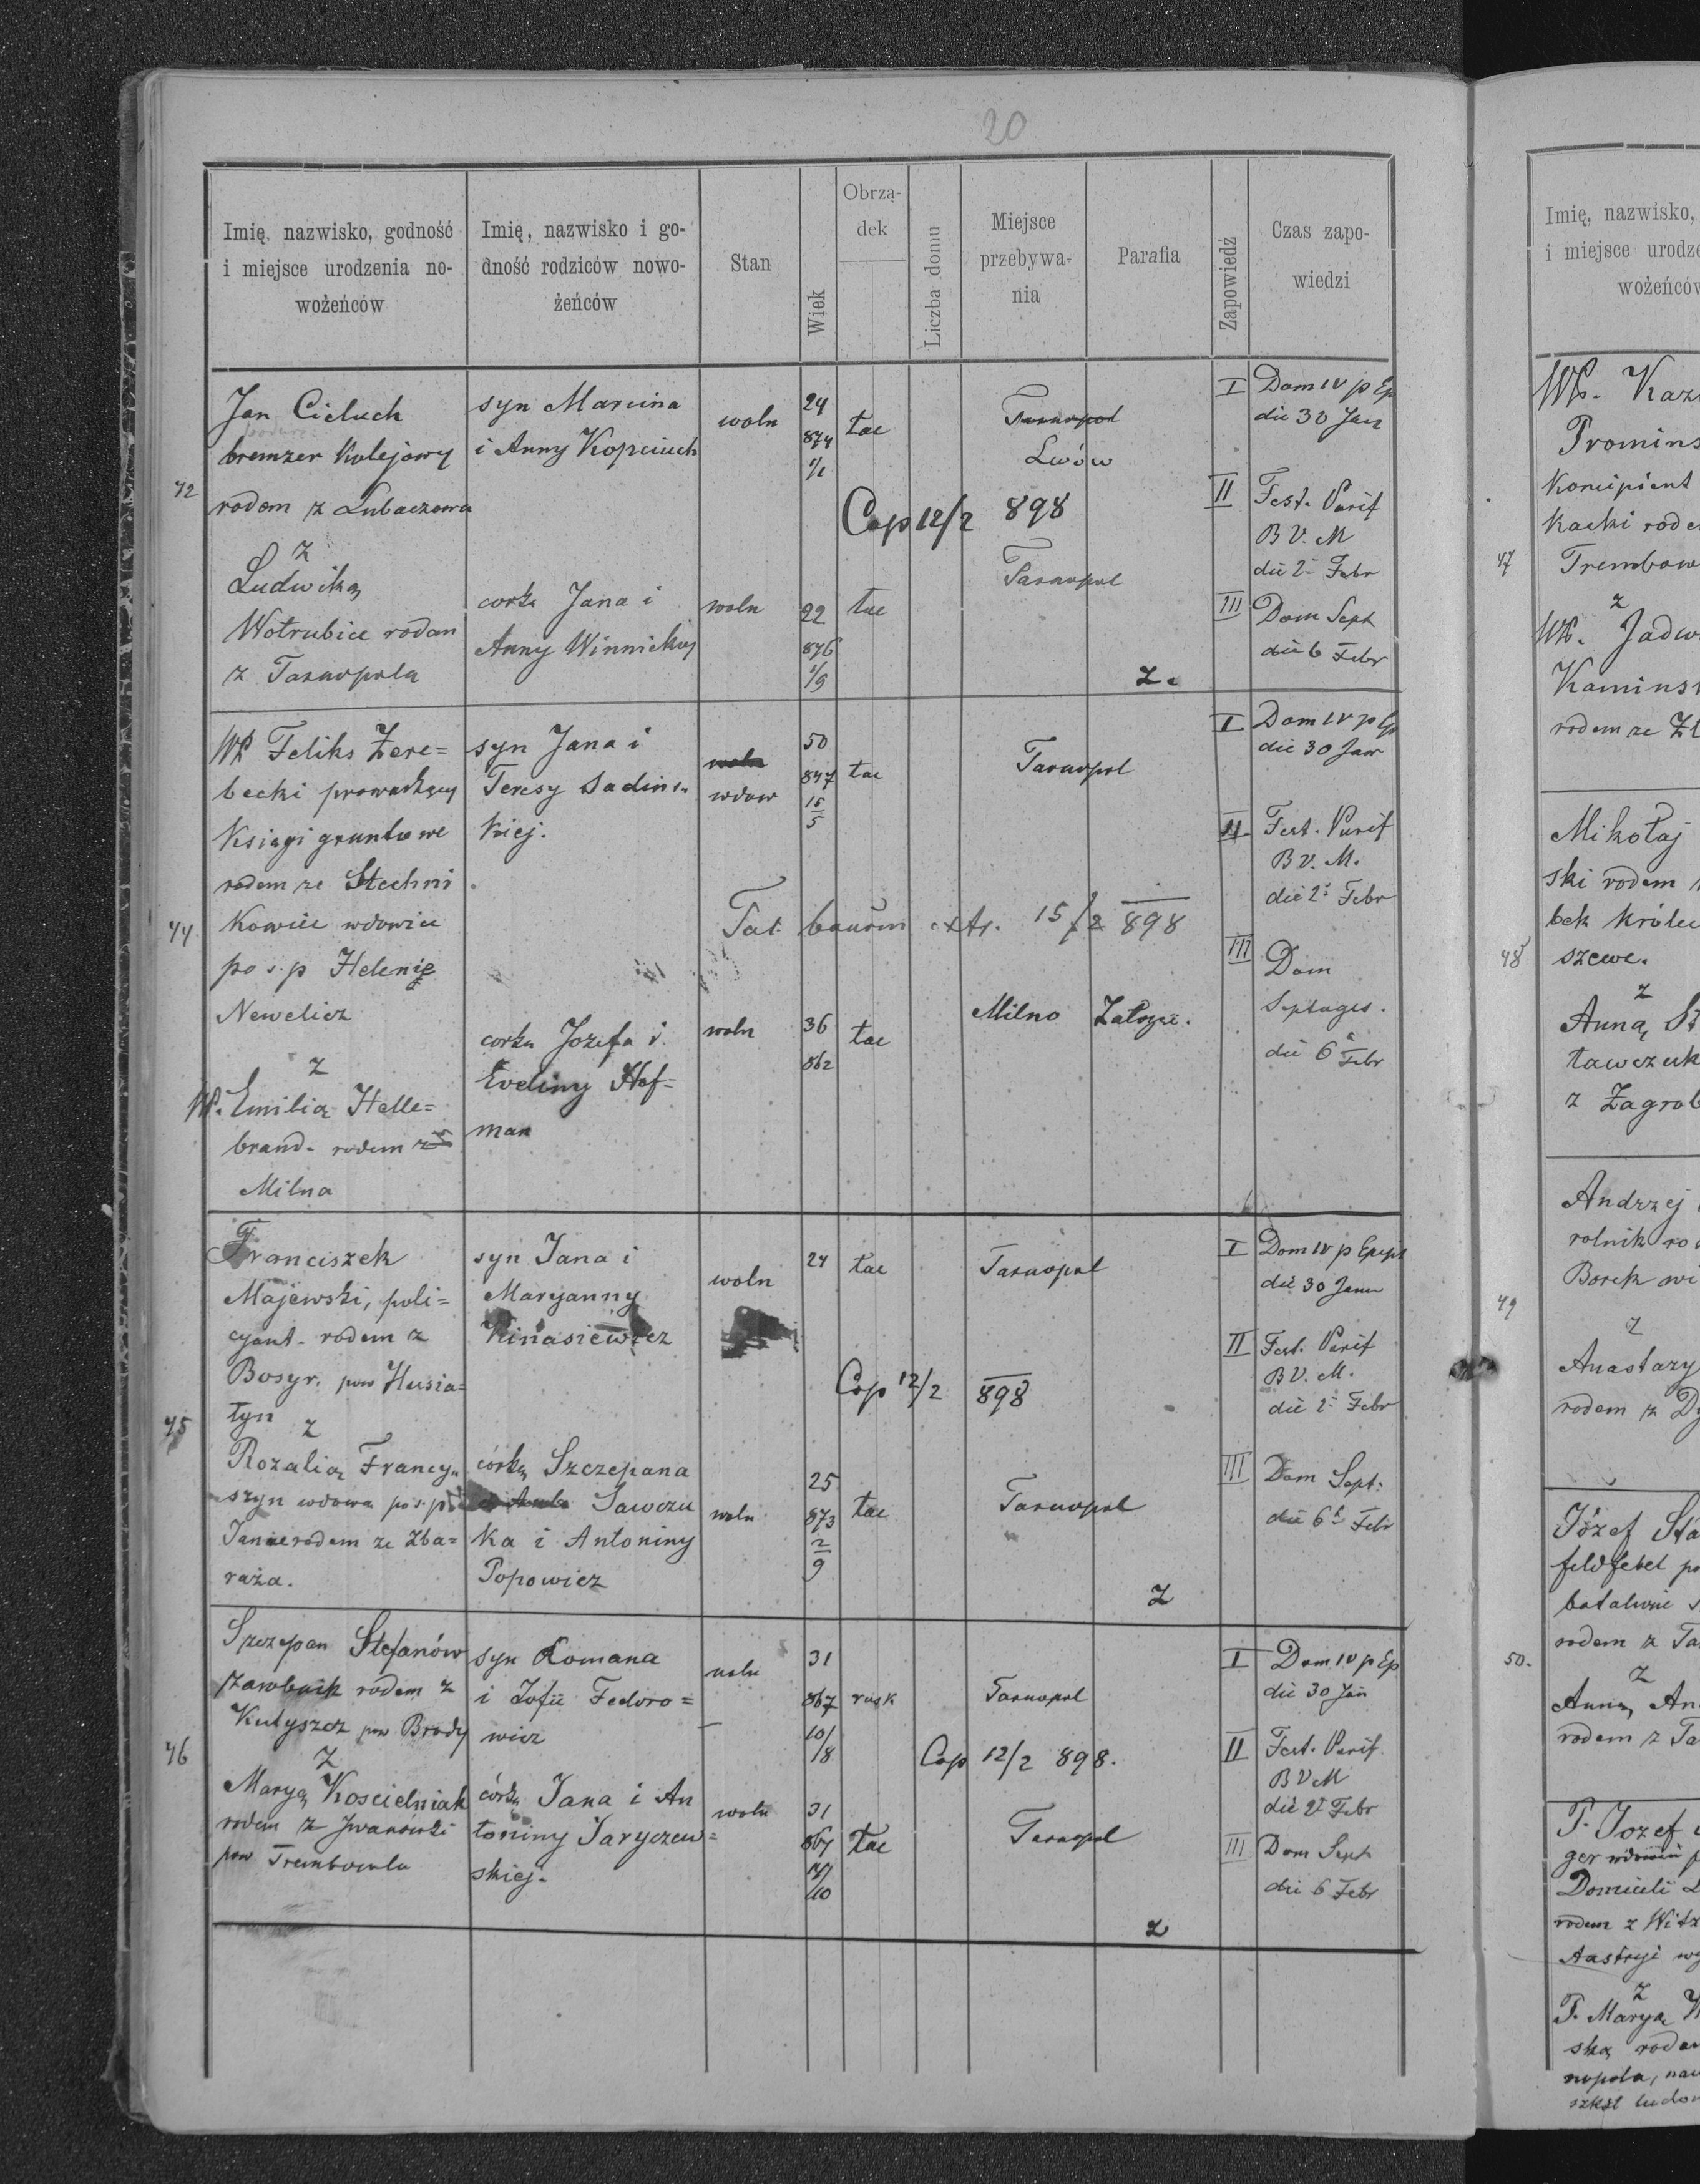 20
Imię, nazwisko, godność
i miejsce urodzenia no-
wożeńców
Imię, nazwisko i go-
dność rodziców nowo-
żeńców
Stan
Wiek
Obrzą-
dek
Liczba domu
Miejsce
przebywa-
nia
Parafia
Zapowiedź
Czas zapo-
wiedzi
Jan Cieluch
bremzer kolejowy
rodem z Lubaczowa
z
Ludwiką
Wotrubiec rodem
z Tarnopola
syn Marcina
i Anny Kopciuch
corka Jana i
Anny Winnickiej
woln
24
874
1/1
łac
Tarnopol
Lwów
Cop 12/2 898
Tarnopol
woln
22
876
1/9
łac
z.
I Dom IV p Ep
die 30 Jan
II Fest. Purif
B V. M
die 2 Febr
III Dom Sept
die 6 Febr
44
WP Feliks Żere=
becki prowadzący
Księgi gruntowe
rodem ze Stechni
kowiec wdowiec
po ś.p Helenie
Newelicz
z
W. Emilią Helle=
brand. rodem z
Milna
syn Jana i
Teresy Sadins-
kiej.
corka Jozefa i
Eveliny Hof=
man
woln
wdow
50
847
15
5
łac
Tarnopol
15/2 898
woln
36
862
łac
Milno
I Dom IV p Ep
die 30 Jan
II Fest. Purif
B V. M.
die 2 Febr
III Dom
Septuages.
die 6 Febr
45
Franciszek
Majewski, poli=
cyant. rodem z
Bosyr. pow Husia=
tyn
z
Rozalią Francy-
szyn wdowa po ś.p.
Janie rodem ze Zba=
raża.
syn Jana i
Maryanny
Kinasiewicz
córką Szczepana
Sawczu
ka i Antoniny
Popowicz
woln
24
łac
Tarnopol
Cop 12/2 898
woln
25
873
2
9
łac
Tarnopol
z
I Dom IV p Epiph
die 30 Janu
II Fest. Purif
B V. M.
die 2 Febr
III Dom Sept.
die 6 Febr
46
Szczepan Stefanów
zarobnik rodem z
Kutyszcz pow Brody
z
Maryą Koscielniak
rodem z Iwanówki
pow Trembowla
syn Romana
i Zofii Fedoro=
wicz
córką Jana i An
toniny Saryczew=
skiej.
woln
31
867
10/8
rusk
Tarnopol
Cop 12/2 898.
woln
31
867
/10
łac
Tarnopol
z
I Dom IV p Ep
die 30 Jan
II Fest. Purif
B V M
die 2 Febr
III Dom Sept
die 6 Febr
Imię, nazwisko,
i miejsce urodze
wożeńców
WP. Kaz
Promins
Koncipient
kacki rode
47 Trembow
z
WP. Jadw
Kamins
rodem ze Zł
Mikołaj
ski rodem
bek króle
48 szewc.
z
Anną St
ławczuk
z Zagrob
Andrzej
rolnik ro
Borek
49
z
Anastazy
rodem z D
Józef Sta
feldfebel
rodem z Ta
50.
z
Anną An
rodem z Ta
P. Jozef
ger
rodem z
z
P. Maryą
ską rodem
nopola,